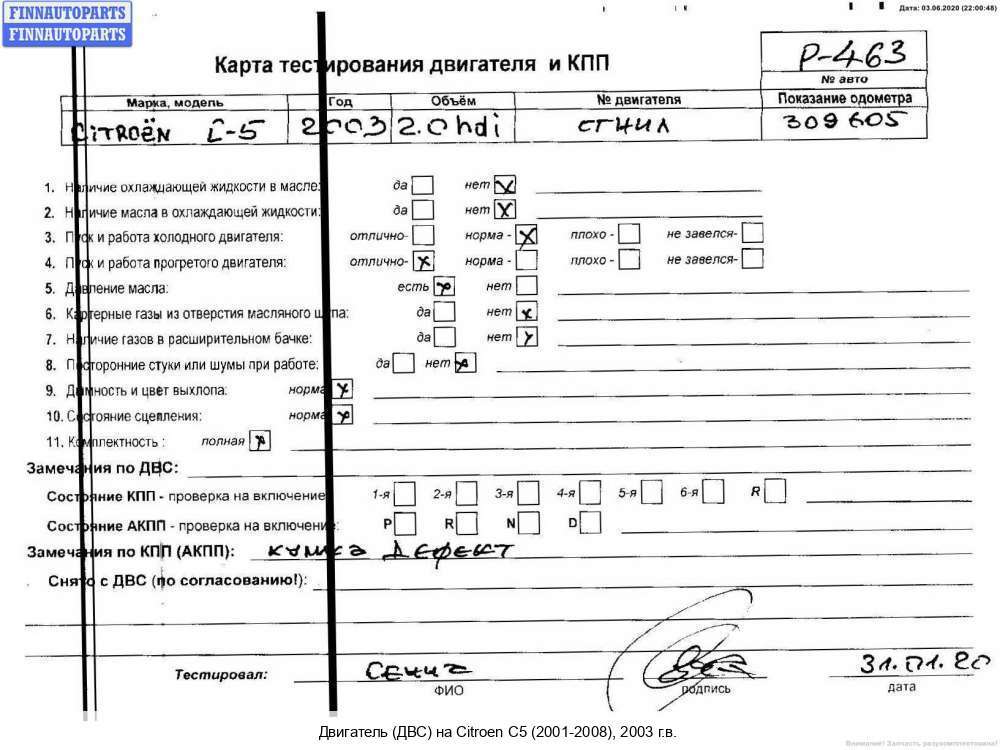 FINNAUTOPARTS
FINNAUTOPARTS
Дата: 03.06.2020 (22:00:48)
Карта тестирования двигателя и КПП
P-463
№ авто
Марка, модель Год Объём № двигателя Показание одометра
CiTROËN C-5 2003 2.0 hdi СГНИЛ 309605
1. Наличие охлаждающей жидкости в масле: да нет
2. Наличие масла в охлаждающей жидкости: да нет
3. Пуск и работа холодного двигателя: отлично- норма - плохо - не завелся-
4. Пуск и работа прогретого двигателя: отлично- норма - плохо - не завелся-
5. Давление масла: есть нет
6. Картерные газы из отверстия масляного щупа: да нет
7. Наличие газов в расширительном бачке: да нет
8. Посторонние стуки или шумы при работе: да нет
9. Дымность и цвет выхлопа: норма
10. Состояние сцепления: норма
11. Комплектность : полная
Замечания по ДВС:
Состояние КПП - проверка на включение 1-я 2-я 3-я 4-я 5-я 6-я R
Состояние АКПП - проверка на включение: P R N D
Замечания по КПП (АКПП): ДЕФЕКТ
Снято с ДВС (по согласованию!):
Тестировал: 31.01.20
ФИО подпись дата
Двигатель (ДВС) на Citroen C5 (2001-2008), 2003 г.в.
Внимание! Запчасть разукомплектована!